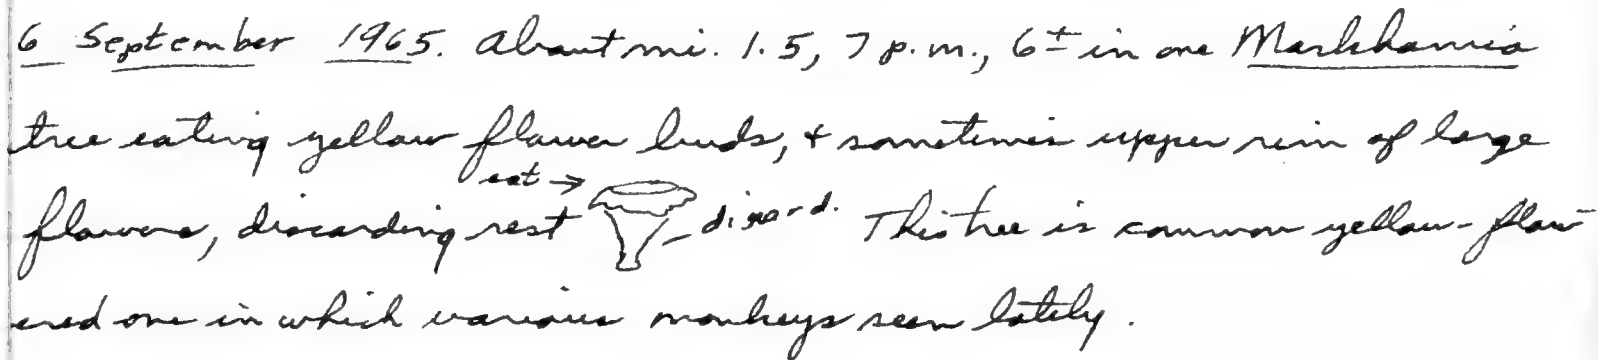 6 September 1965. About mi. 1.5, 7 p.m., 6± in one Markhamia
tree eating yellow flower buds, + sometimes upper rim of large
eat →
flowers, discarding rest - discard. This tree is common yellow-flow-
ered one in which various monkeys seen lately.